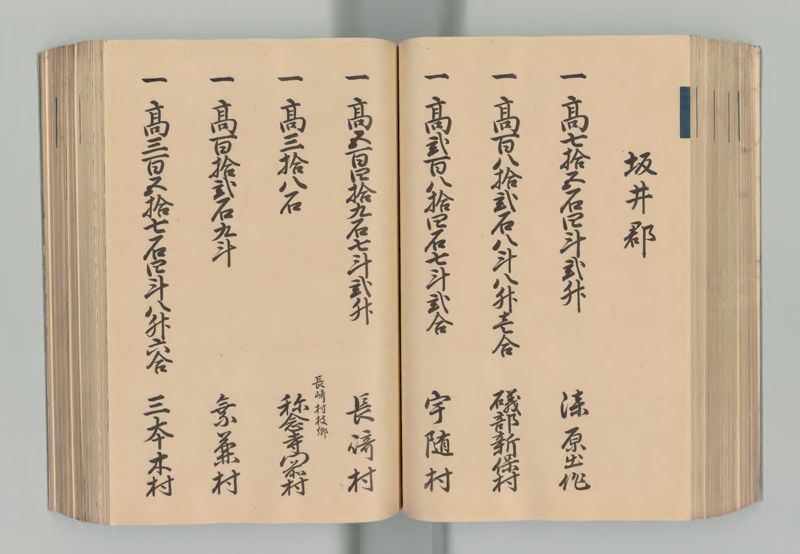 坂井郡
一 高七拾五石四斗弐升 漆原出作
一 高百八拾弐石八斗八升壱合 磯部新保村
一 高弐百八拾四石七斗弐合 宇随村
一 高五百四拾九石七斗弐升 長崎村
長崎村枝郷
一 高三拾八石 称念寺門前村
一 高百拾弐石九斗 兼村
一 高三百五拾七石四斗八升六合 三本木村